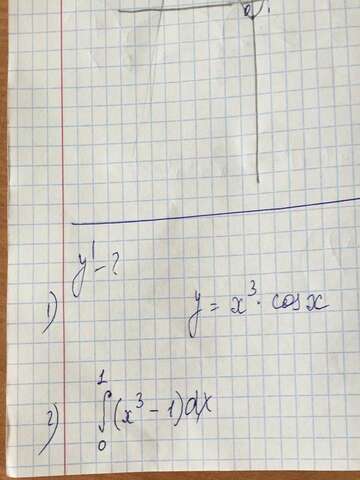 y' - ?
1) y = x³ · cos x
2) ∫₀¹ (x³ - 1) dx